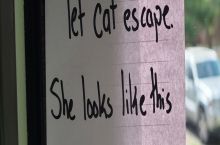 let cat escape.
She looks like this